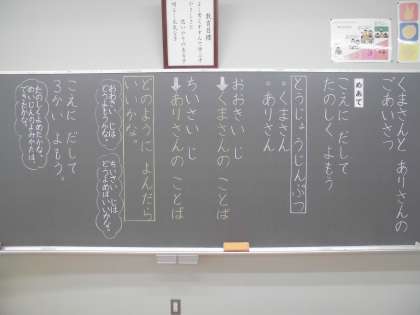 教育目標
くまさんと ありさんの
ごあいさつ
めあて
こえに だして
たのしく よもう
とうじょうじんぶつ
・くまさん
・ありさん
おおきい じ
➡くまさんの ことば
ちいさい じ
➡ありさんの ことば
どのように よんだら
いいかな。
おおきい じは
ちいさい じは
どうよめばいいかな。
こえに だして
3かい よもう。
たのしくよめたかな。